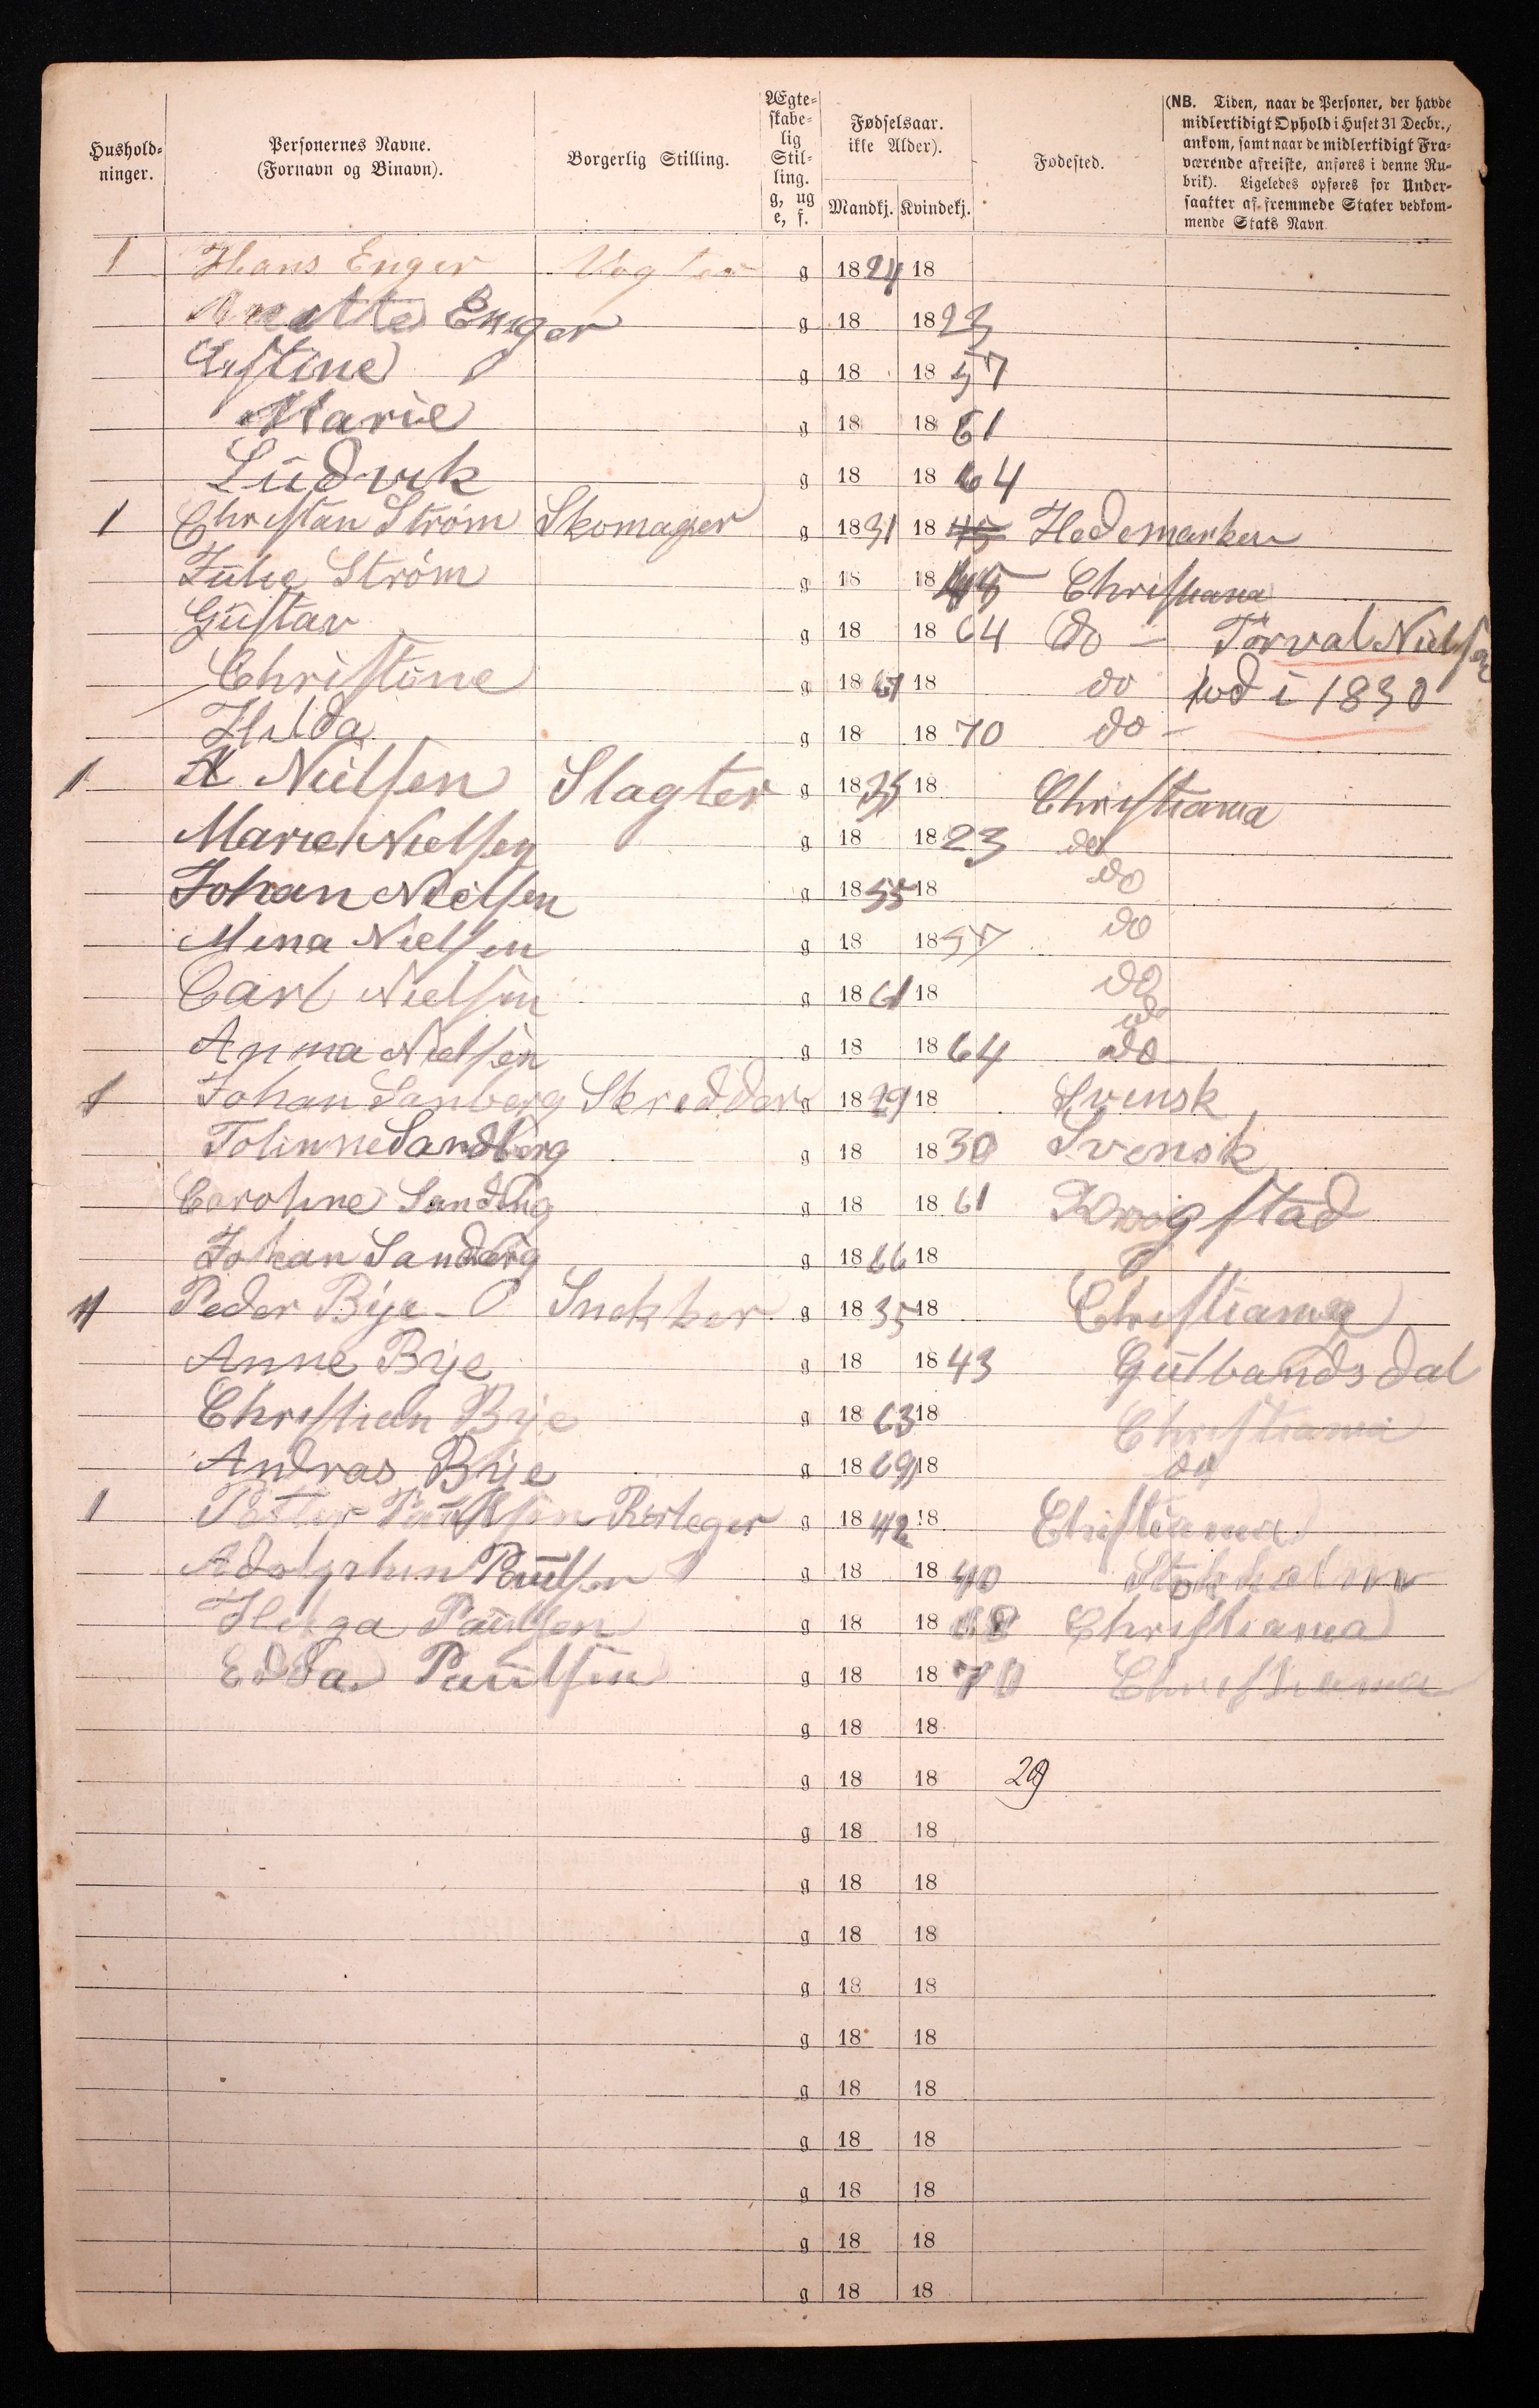 Hushold-ninger. Personernes Navne. (Fornavn og Binavn). Borgerlig Stilling. Ægte-skabe-lig Stil-ling. g, ug e, f. Fødselsaar. ikke Alder). Mandkj. Kvindekj. Fødested. (NB. Tiden, naar de Personer, der havde midlertidigt Ophold i Huset 31 Decbr., ankom, samt naar de midlertidigt Fra-værende afreiste, anføres i denne Ru-brik). Ligeledes opføres for Under-saatter af fremmede Stater vedkom-mende Stats Navn.
1 Hans Enger Vogter g 1824 18
Anette Enger g 18 1823
Cristine g 18 1857
Marie g 18 1861
Ludvik g 18 1864
1 Christan Strøm Skomager g 1831 18 45 Hedemarken
Julie Strøm g 18 1845 Christiana
Gustav g 18 1864 do - Torval Nielsen
Christine g 1867 18 do fød i 1830
Hilda g 18 1870 do -
1 A Neilsen Slagter g 1835 18 Christiania
Marie Nielsen g 18 1823 do
Johan Nielsen g 1855 18 do
Mina Nielsen g 18 1857 do
Carl Nielsen g 1861 18 do
do
Anma Nielsen g 18 1864 do
1 Johan Sanberg Skreddar g 1829 18 Svensk
Tolinne Sandberg g 18 1830 Svensk
Caroline Sandbg g 18 1861 Krogstad
Johan Sandberg g 1866 18
1 Peder Bye - Snekker g 1835 18 Christiania
Anne Bye g 18 1843 Gulbandsdal
Christian Bye g 1863 18 Christiania
Andras Bye g 1869 18 do
1 Petter Paulsen Rørleger g 1842 18 Christiania
Adolphin Paulsen g 18 1840 Stokholm
Helga Paulsen g 18 1868 Christiania
Edda Paulsen g 18 1870 Christiania
g 18 18
g 18 18 29
g 18 18
g 18 18
g 18 18
g 18 18
g 18 18
g 18 18
g 18 18
g 18 18
g 18 18
g 18 18